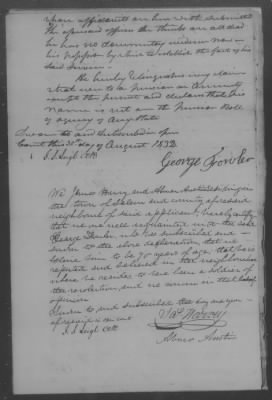 whose affidavits are herewith submitted
the aforesaid officers he thinks are all dead
he has no documentary evidence now in
his possession by which to establish the fact of his
said service.
He hereby relinquishes any claim
whatever to a pension or annuity
except the present and declares that his
name is not on the pension Roll
of agency of any state
Sworn to and subscribed in open
Court this 30th day of August 1832
George Fowler
We James Harvey and Abner residing in
the town of Salem and county aforesaid
neighbours of said applicant hereby certify
that we are well acquainted with the said
George Fowler who has subscribed and
sworn to the above declaration that we
believe him to be 70 years of age that he is
reputed and believed in the neighbourhood
where he resides to have been a soldier of
the revolution, and we concur in that
opinion
Sworn to and subscribed the day and year
aforesaid in open court
Jas Harvey
Abner